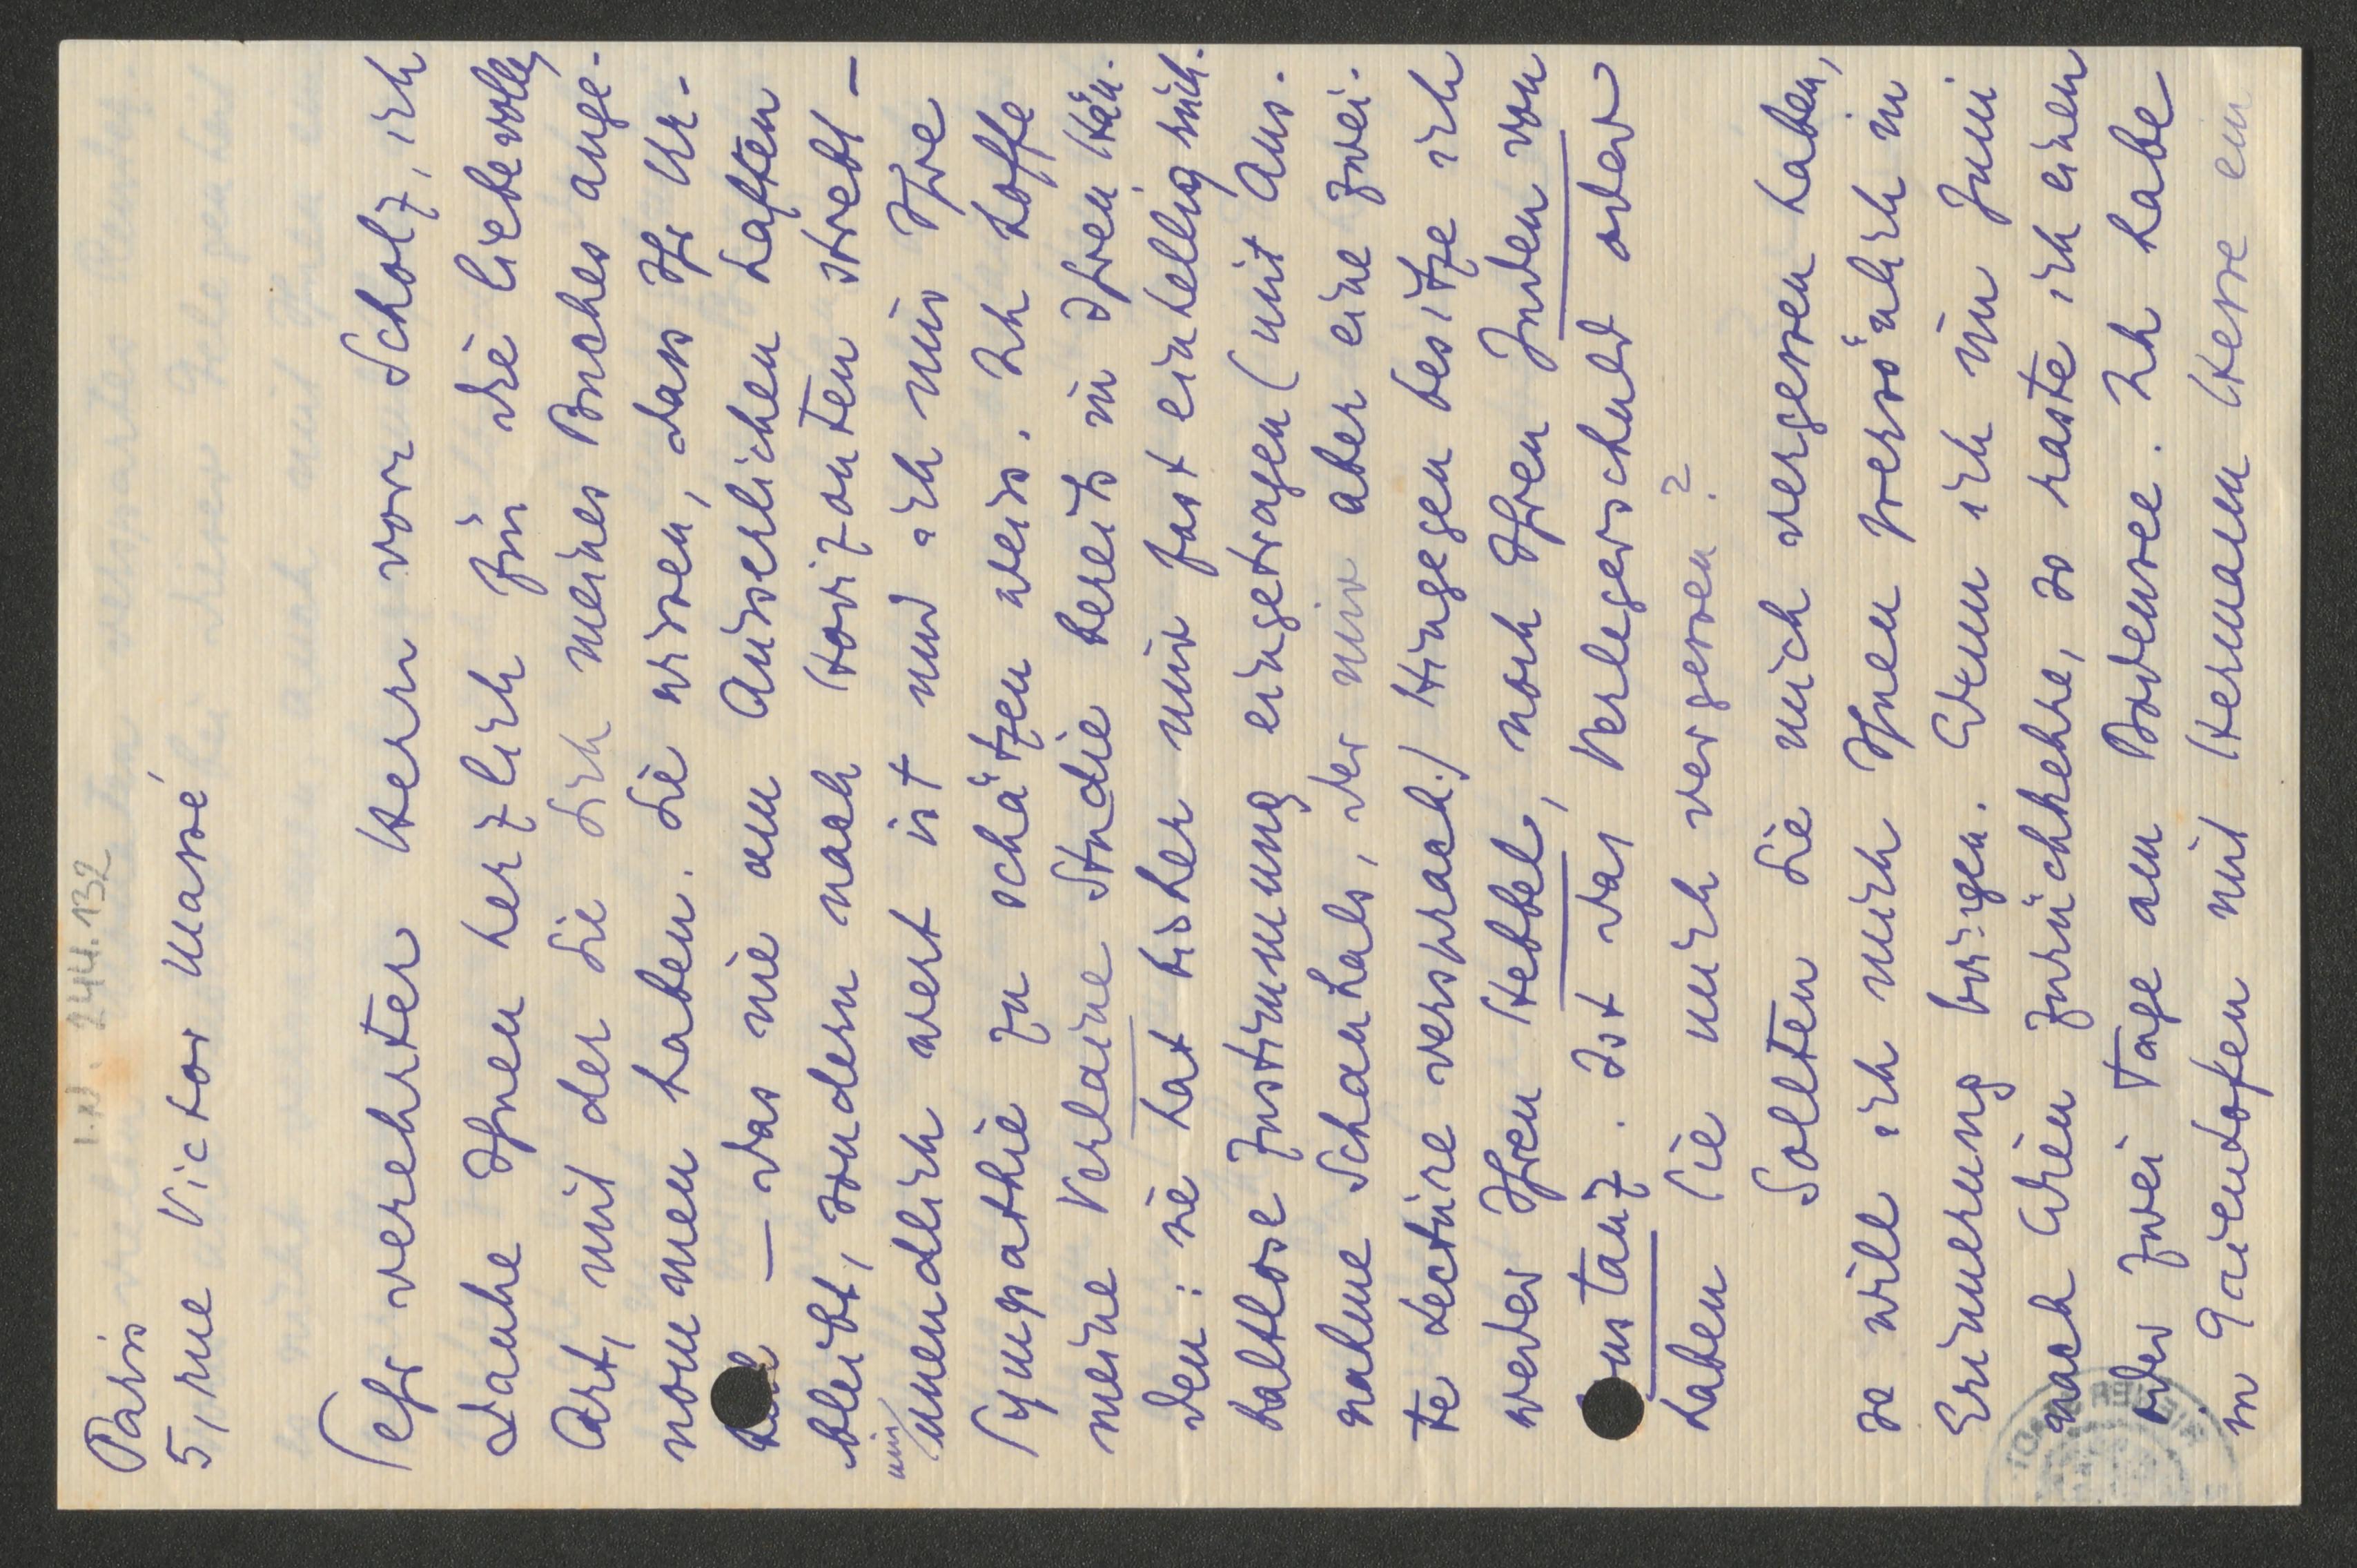 I.N. 244.132
Paris
5, rue Victor Massé
Sehr verehrter Herr von Scholz, ich
danke Ihnen herzlich für die liebevolle
Art, mit der Sie sich meines Buches ange-
nommen haben. Sie wissen, dass Ihr Ur-
teil – das nie am Äusserlichen haften
bleibt, sondern nach Horizonten strebt –
mir unendlich wert ist und ich nur Ihre
Sympathie zu schätzen weiss. Ich hoffe
meine Verlaine Studie bereits in Ihren Hän-
den: sie hat bisher nur fast einhellig rück-
haltlose Zustimmung eingetragen (mit Aus-
nahme Schaukals, der mir aber eine zwei-
te Lectüre versprach.) Hingegen besitze ich
weder Ihren Hebbel, noch Ihren Juden von
Constanz. Ist das Verlegerschuld oder
haben Sie mich vergessen?
Sollten Sie mich vergessen haben,
so will ich mich Ihnen persönlich in
Erinnerung bringen. Wenn ich im Juni
nach Wien zurückkehre, so raste ich einen
oder zwei Tage am Bodensee. Ich habe
in Gaienhofen mit Hermann Hesse ein